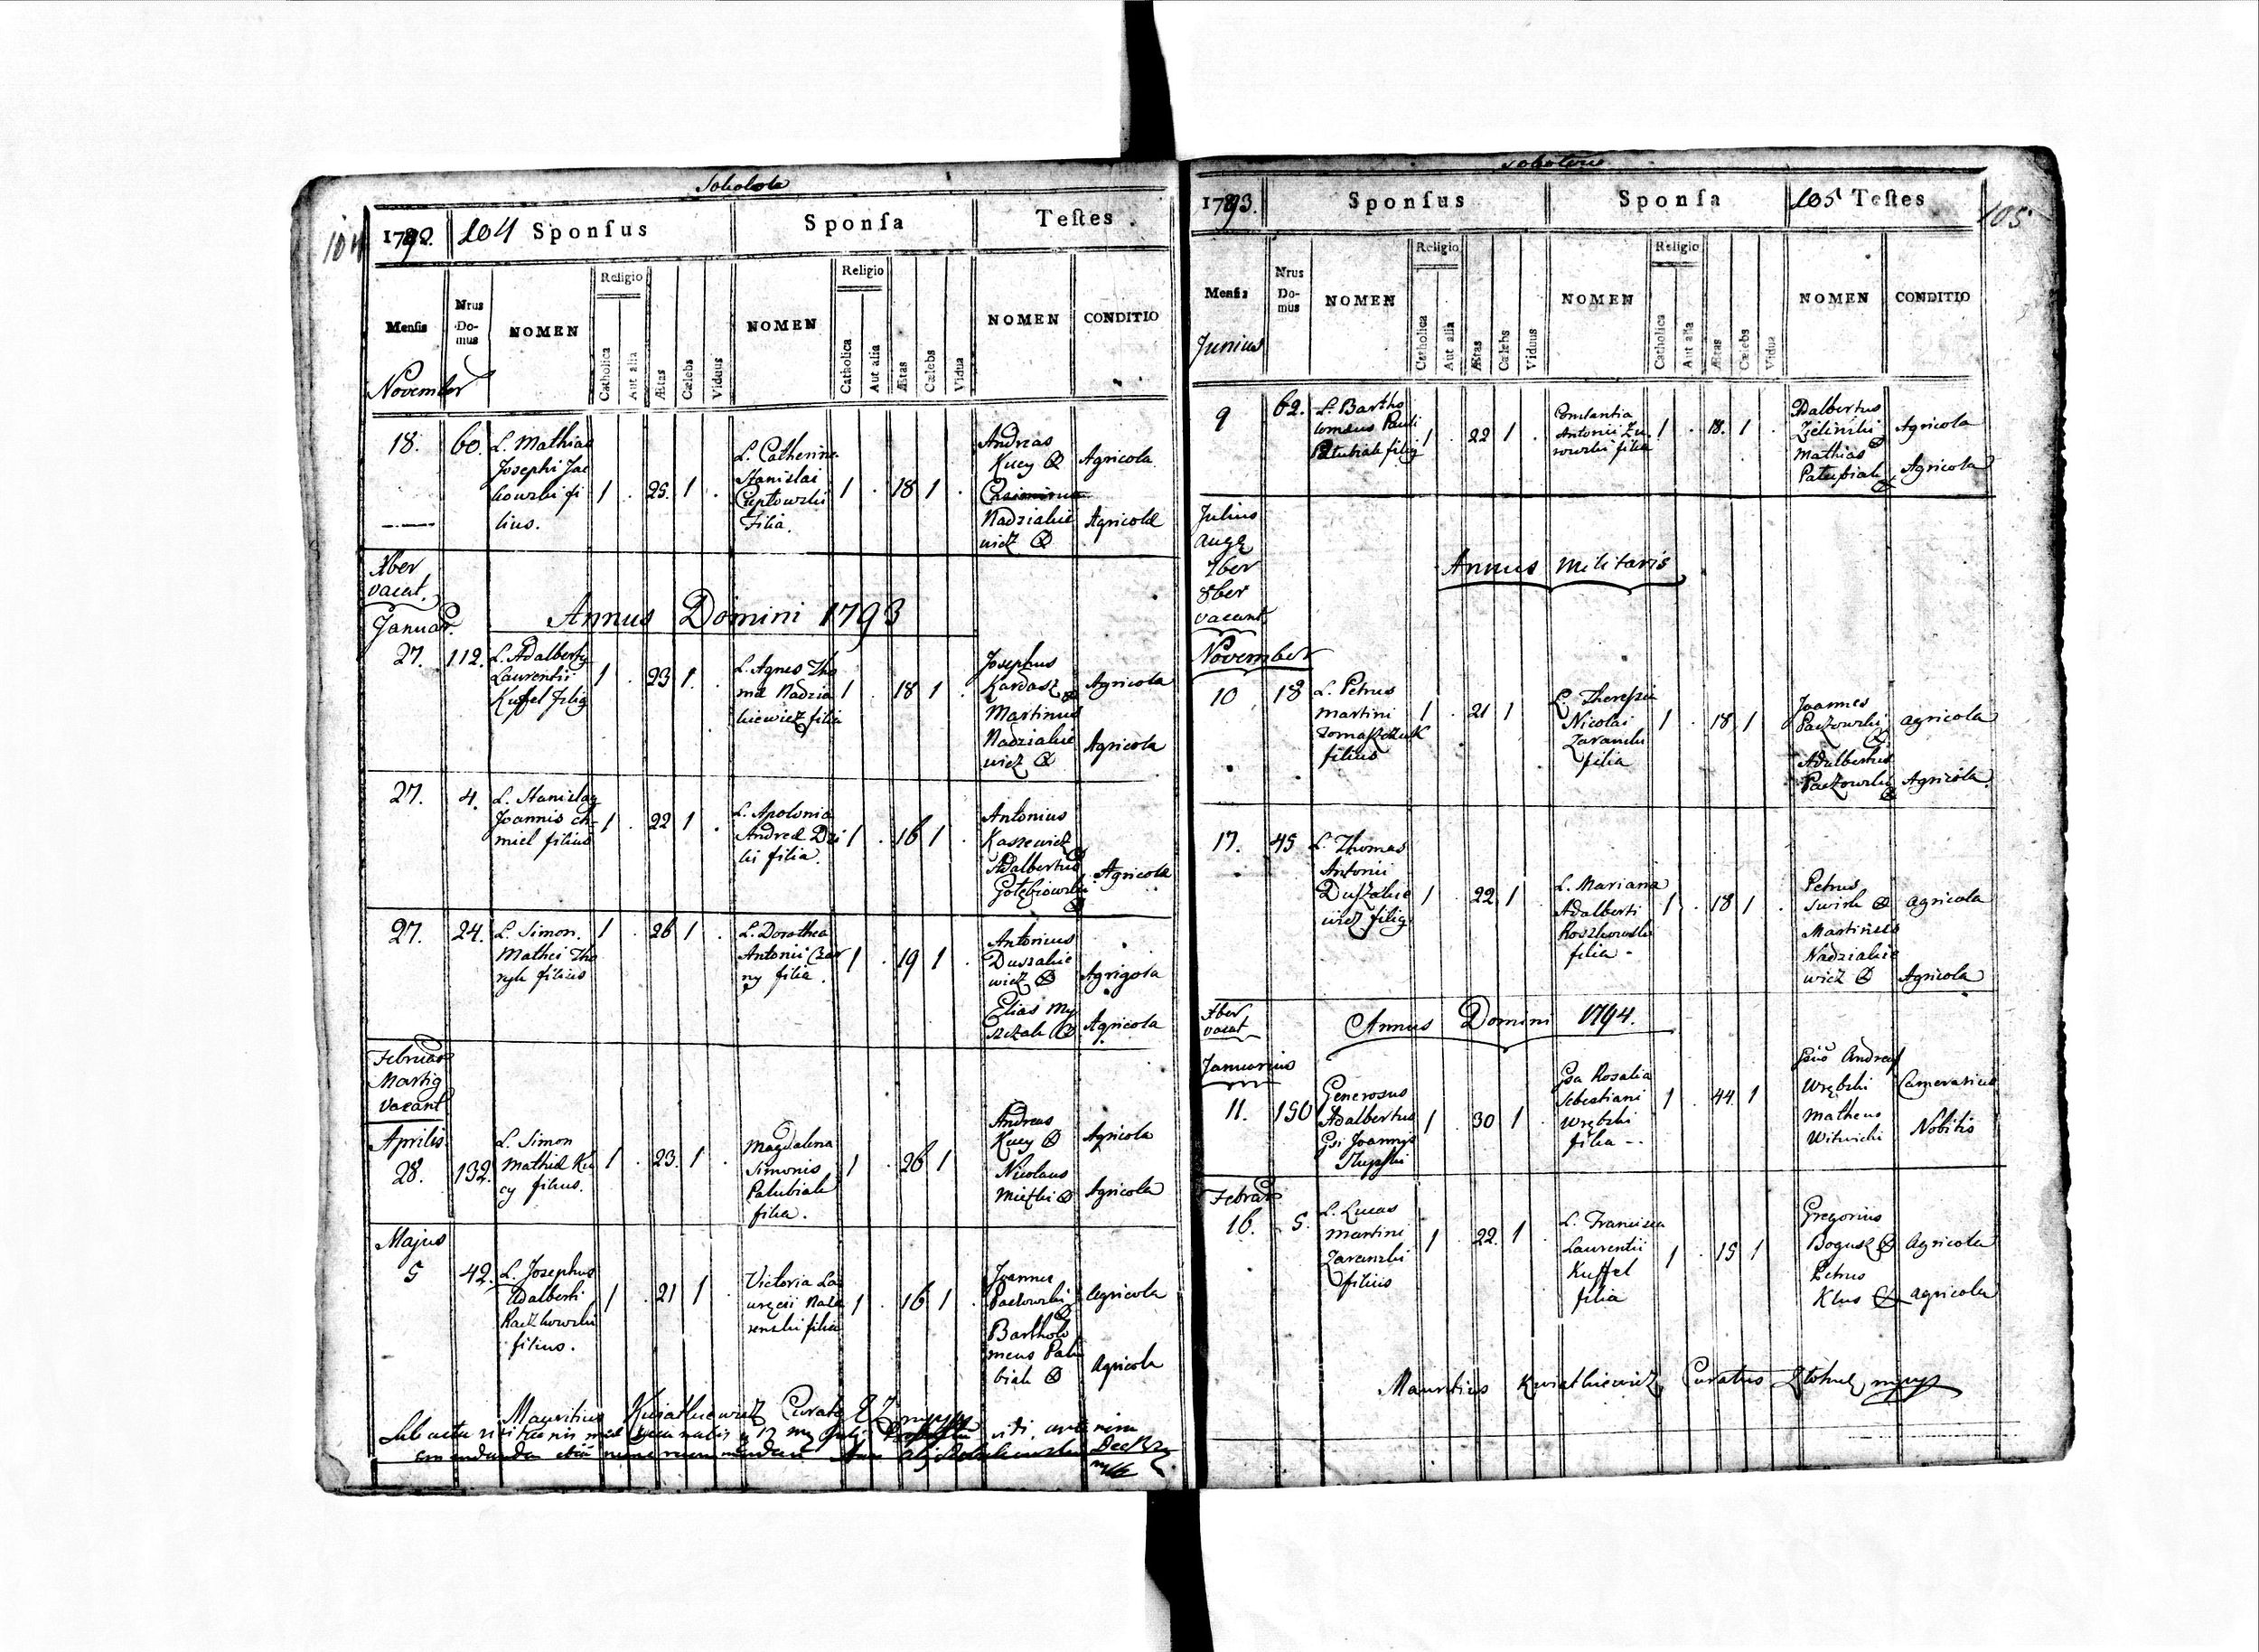 Sokolow
104
1792. 104 Sponſus Sponſa Teſtes
Menſis Nrus Do- mus NOMEN Religio Catholica Aut alia Ætas Cælebs Viduus NOMEN Religio Catholica Aut alia Ætas Cælebs Vidua NOMEN CONDITIO
November
18. 60. L. Mathias
Josephi Jac
kowski fi
lius.
1 . 25. 1 .
L. Catherina
Stanislai
Ceptowski
Filia.
1 . 18 1 .
Andreas
Kucy
Agricola
Casimirus
Nadziakie
wicz
Agricola
Xber
vacat.
Annus Domini 1793
Januar.
27. 112. L. Adalbertg
Laurentii
Kuffel filig
1 23 1 .
L. Agnes Tho
mæ Nadzia
kiewicz filia
1 . 18 1 .
Josephus
Kardasz
Agricola
Martinus
Nadziakie
wicz
Agricola
27. 4. L. Stanislag
Joannis Ch-
miel filius
1 . 22 1 .
L. Apolonia
Andreæ Dzi
ki filia.
1 . 16 1 .
Antonius
Kaszewicz
Adalbertus
Gołębiowski
Agricola
27. 24. L. Simon.
Mathei Tho
ryk filius
1 . 26 1 .
L. Dorothea
Antonii Czar
ny filia.
1 . 19 1 .
Antonius
Duszakie
wicz
Agrigola
Elias My
szczak
Agricola
Februar
Martig
vacant
Aprilis
28. 132. L. Simon
Mathiæ Ku
cy filius.
1 . 23. 1 .
Magdalena
Simonis
Palubiak
filia.
1 . 26 1
Andreas
Kucy
Agricola
Nicolaus
Agricola
Majus
5 42. L. Josephus
Adalberti
Raczkowski
filius.
1 . 21 1 .
Victoria La
filia
1 . 16 1 .
Joannes
Paczowski
Agricola
Bartholo
meus Palu
biak
Agricola
Mauritius Kwiatkiewicz Curatg
Sokolow
105
1793. Sponſus Sponſa 105 Teſtes
Menſis Nrus Do- mus NOMEN Religio Catholica Aut alia Ætas Cælebs Viduus NOMEN Religio Catholica Aut alia Ætas Cælebs Vidua NOMEN CONDITIO
Junius
9 62. L. Bartho
lomæus Pauli
Palubiak filig
1 . 22 1 .
Constantia
Antonii Żu
rowski filia
1 . 18. 1 .
Adalbertus
Zielinski
Agricola
Mathias
Palubiak
Agricola
Julius
Augg
7ber
8ber
vacant.
Annus Militaris
November
10 18 L. Petrus
Martini
Tomaszczuk
filius
1 . 21 1
L. Theresia
Nicolai
Zaranski
filia
1 . 18 1
Joannes
Paczowski
agricola
Adalbertus
Paczowski
Agricola.
17. 45 L. Thomas
Antonii
Duszakie
wicz filig
1 . 22 1 .
L. Mariana
Adalberti
Roszkowski
filia -
1 . 18 1 .
Petrus
Swirk
agricola
Martinus
Nadziakie
wicz
Agricola
Xber
vacat
Annus Domini 1794.
Januarius
11. 150 Generosus
Adalbertus
Gsi Joannis
1 . 30 1 .
Gsa Rosalia
Sebestiani
Wrębski
filia -.
1 . 44. 1
Gsus Andreas
Wrębski
Camerarius
Matheus
Witwicki
Nobilis
Februar
16. 5. L. Lucas
Martini
Zaranski
filius
1 . 22. 1 .
L. Francisca
Laurentii
Kuffel
filia
1 . 15 1
Gregorius
Bogusz
Agricola
Petrus
Klus
agricola
Mauritius Kwiatkiewicz Curatus